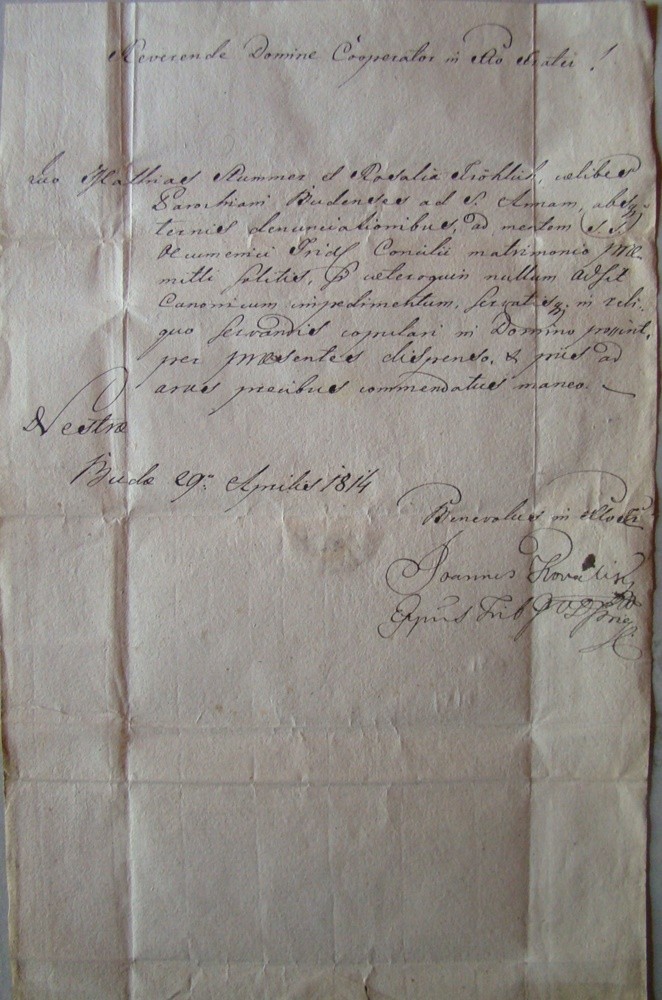 Reverende Domine Cooperator in Xto Frater!
Quo Mathias Kummer et Rosalia Fröhlich, cœlibes
Parochiani Budenses ad S. Annam, absq;
ternis denunciationibus, ad mentem S. S.
Oecumenici Trid. Concilii matrimonio præ-
mitti solitis, si cæteroquin nullum adsit
Canonicum impedimentum, servatisq; in reli-
quo servandis copulari in Domino possint,
per præsentes dispenso, & piis ad
aras precibus commendatus maneo.
Vestræ
Budæ 29a Aprilis 1814
Benevolus in Xto
Joannes
Eppus Trib